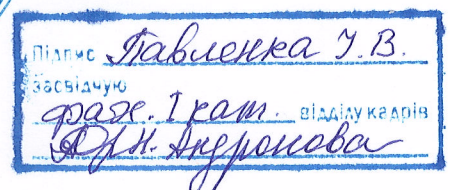 Підпис Павленка У.В.
засвідчую
фах. І кат. відділу кадрів
Андронова